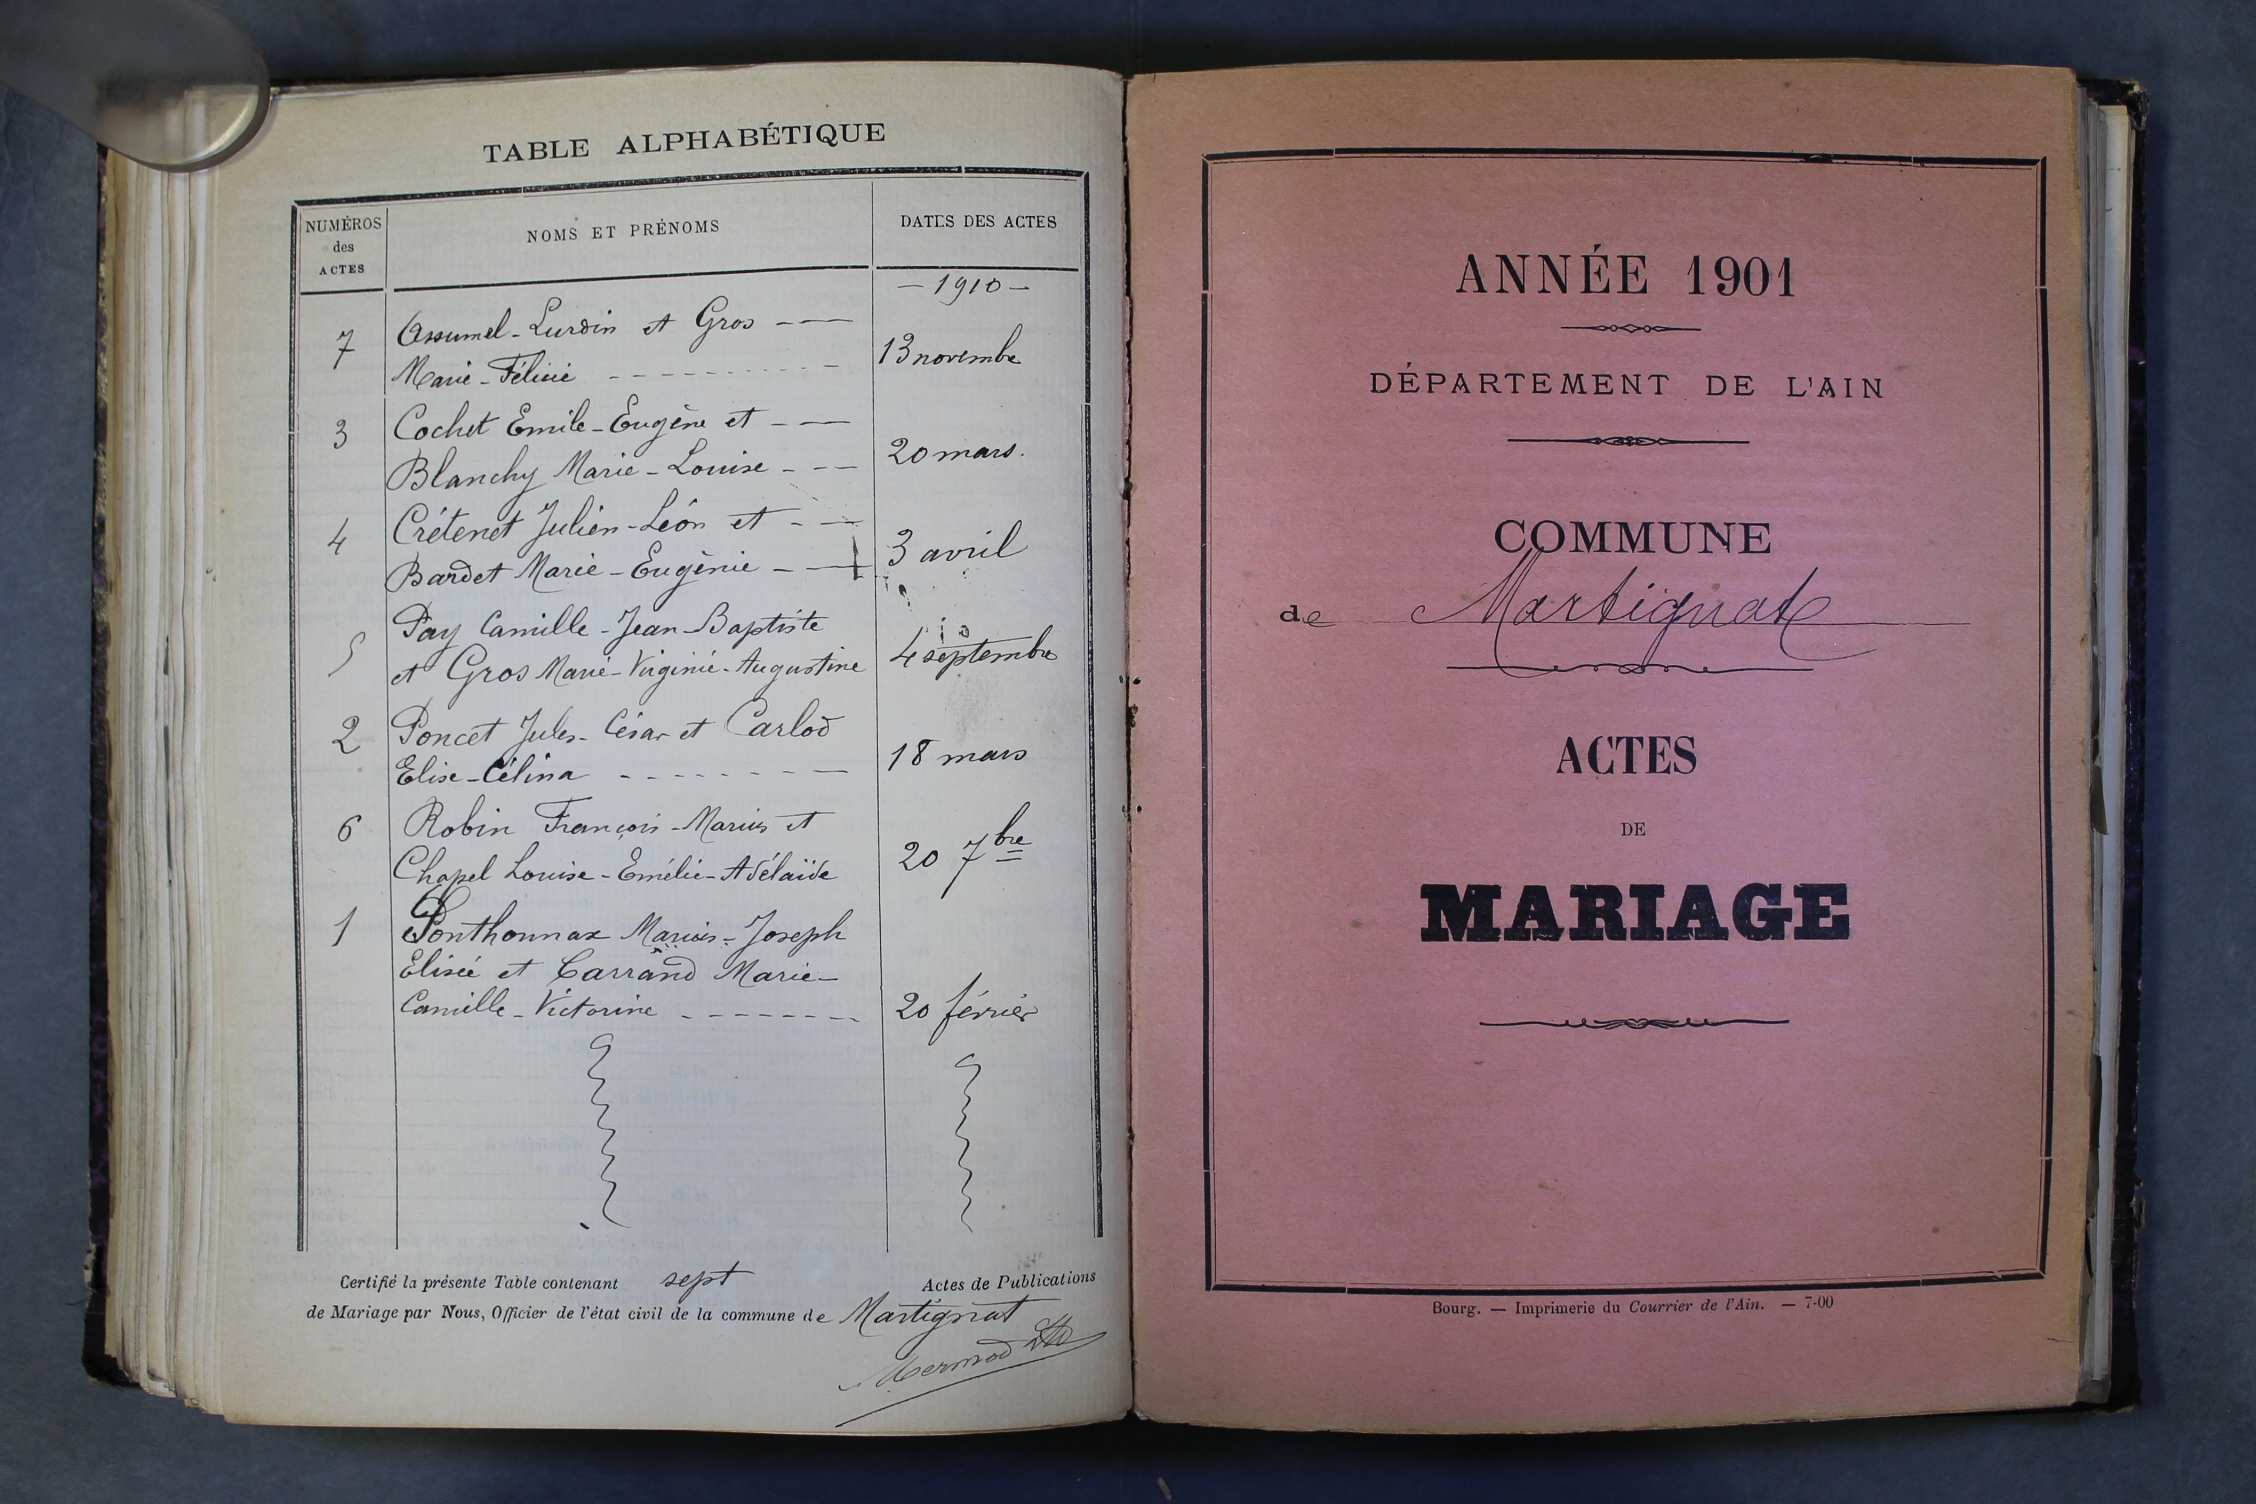 TABLE ALPHABÉTIQUE
NUMÉROS des ACTES
NOMS ET PRÉNOMS
DATES DES ACTES
– 1910 –
7 Assumel-Lurdin et Gros
Marie-Félicie 13 novembre
3 Cochet Emile-Eugène et
Blanchy Marie-Louise 20 mars.
4 Crétenet Julien-Léon et
Bardet Marie-Eugénie 3 avril
5 Pay Camille-Jean-Baptiste
et Gros Marie-Virginie-Augustine 4 septembre
2 Poncet Jules-César et Carlod
Elise-Célina 18 mars
6 Robin François-Marius et
Chapel Louise-Emélie-Adélaïde 20 7bre
1 Ponthonnax Marius-Joseph
Elisée et Carrand Marie-
Camille-Victorine 20 février
Certifié la présente Table contenant sept Actes de Publications
de Mariage par Nous, Officier de l'état civil de la commune de Martignat
Mermod
ANNÉE 1901
DÉPARTEMENT DE L'AIN
COMMUNE
de Martignat
ACTES
DE
MARIAGE
Bourg. — Imprimerie du Courrier de l'Ain. — 7-00